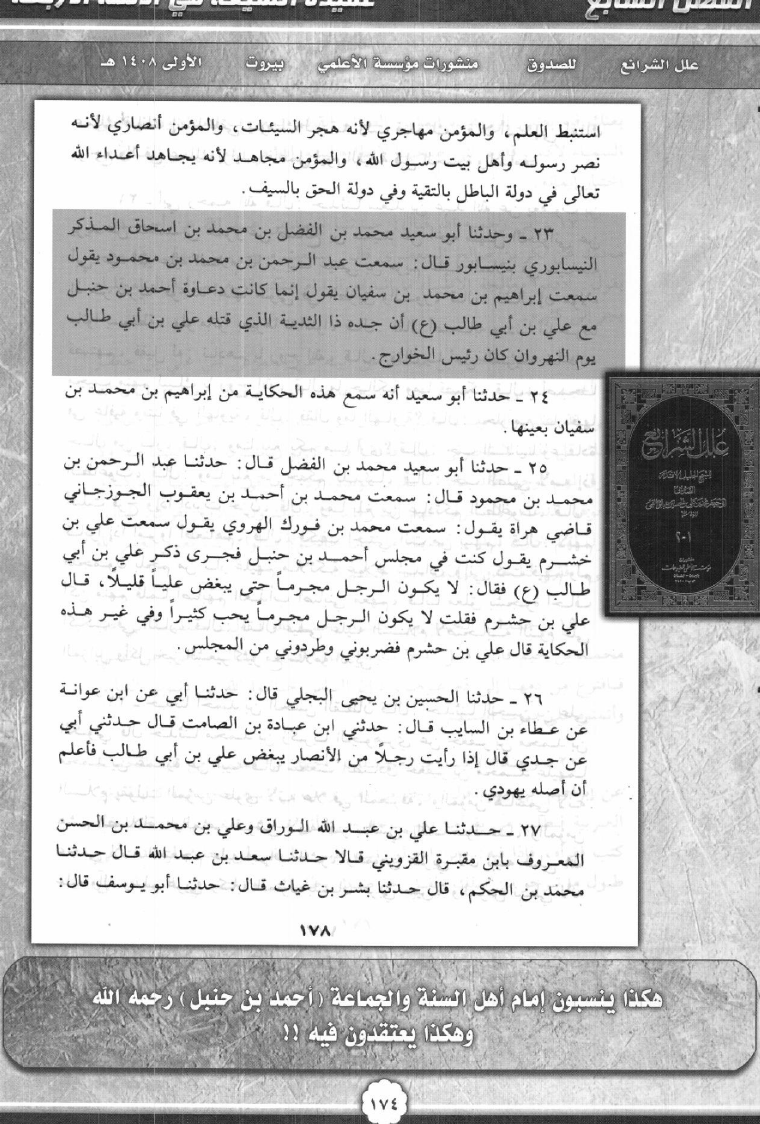 الفصل السابع
عقيدة الشيعة في الأئمة الأربعة
علل الشرائع للصدوق منشورات مؤسسة الأعلمي بيروت الأولى ١٤٠٨ هـ
استنبط العلم، والمؤمن مهاجري لأنه هجر السيئات، والمؤمن أنصاري لأنه
نصر رسوله وأهل بيت رسول الله، والمؤمن مجاهد لأنه يجاهد أعداء الله
تعالى في دولة الباطل بالتقية وفي دولة الحق بالسيف.
٢٣ ـ وحدثنا أبو سعيد محمد بن الفضل بن محمد بن اسحاق المذكر
النيسابوري بنيسابور قال: سمعت عبد الرحمن بن محمد بن محمود يقول
سمعت إبراهيم بن محمد بن سفيان يقول إنما كانت دعاوة أحمد بن حنبل
مع علي بن أبي طالب (ع) أن جده ذا الثدية الذي قتله علي بن أبي طالب
يوم النهروان كان رئيس الخوارج.
٢٤ ـ حدثنا أبو سعيد أنه سمع هذه الحكاية من إبراهيم بن محمد بن
سفيان بعينها.
٢٥ ـ حدثنا أبو سعيد محمد بن الفضل قال: حدثنا عبد الرحمن بن
محمد بن محمود قال: سمعت محمد بن أحمد بن يعقوب الجوزجاني
قاضي هراة يقول: سمعت محمد بن فورك الهروي يقول سمعت علي بن
خشرم يقول كنت في مجلس أحمد بن حنبل فجرى ذكر علي بن أبي
طالب (ع) فقال: لا يكون الرجل مجرماً حتى يبغض علياً قليلاً، قال
علي بن حشرم فقلت لا يكون الرجل مجرماً يحب كثيراً وفي غير هذه
الحكاية قال علي بن حشرم فضربوني وطردوني من المجلس.
٢٦ ـ حدثنا الحسين بن يحيى البجلي قال: حدثنا أبي عن ابن عوانة
عن عطاء بن السايب قال: حدثني ابن عبادة بن الصامت قال حدثني أبي
عن جدي قال إذا رأيت رجلاً من الأنصار يبغض علي بن أبي طالب فأعلم
أن أصله يهودي.
٢٧ ـ حدثنا علي بن عبد الله الوراق وعلي بن محمد بن الحسن
المعروف بابن مقبرة القزويني قالا حدثنا سعد بن عبد الله قال حدثنا
محمد بن الحكم، قال حدثنا بشر بن غياث قال: حدثنا أبو يوسف قال:
١٧٨
علل الشرائع
هكذا ينسبون إمام أهل السنة والجماعة (أحمد بن حنبل) رحمه الله
وهكذا يعتقدون فيه !!
١٧٤